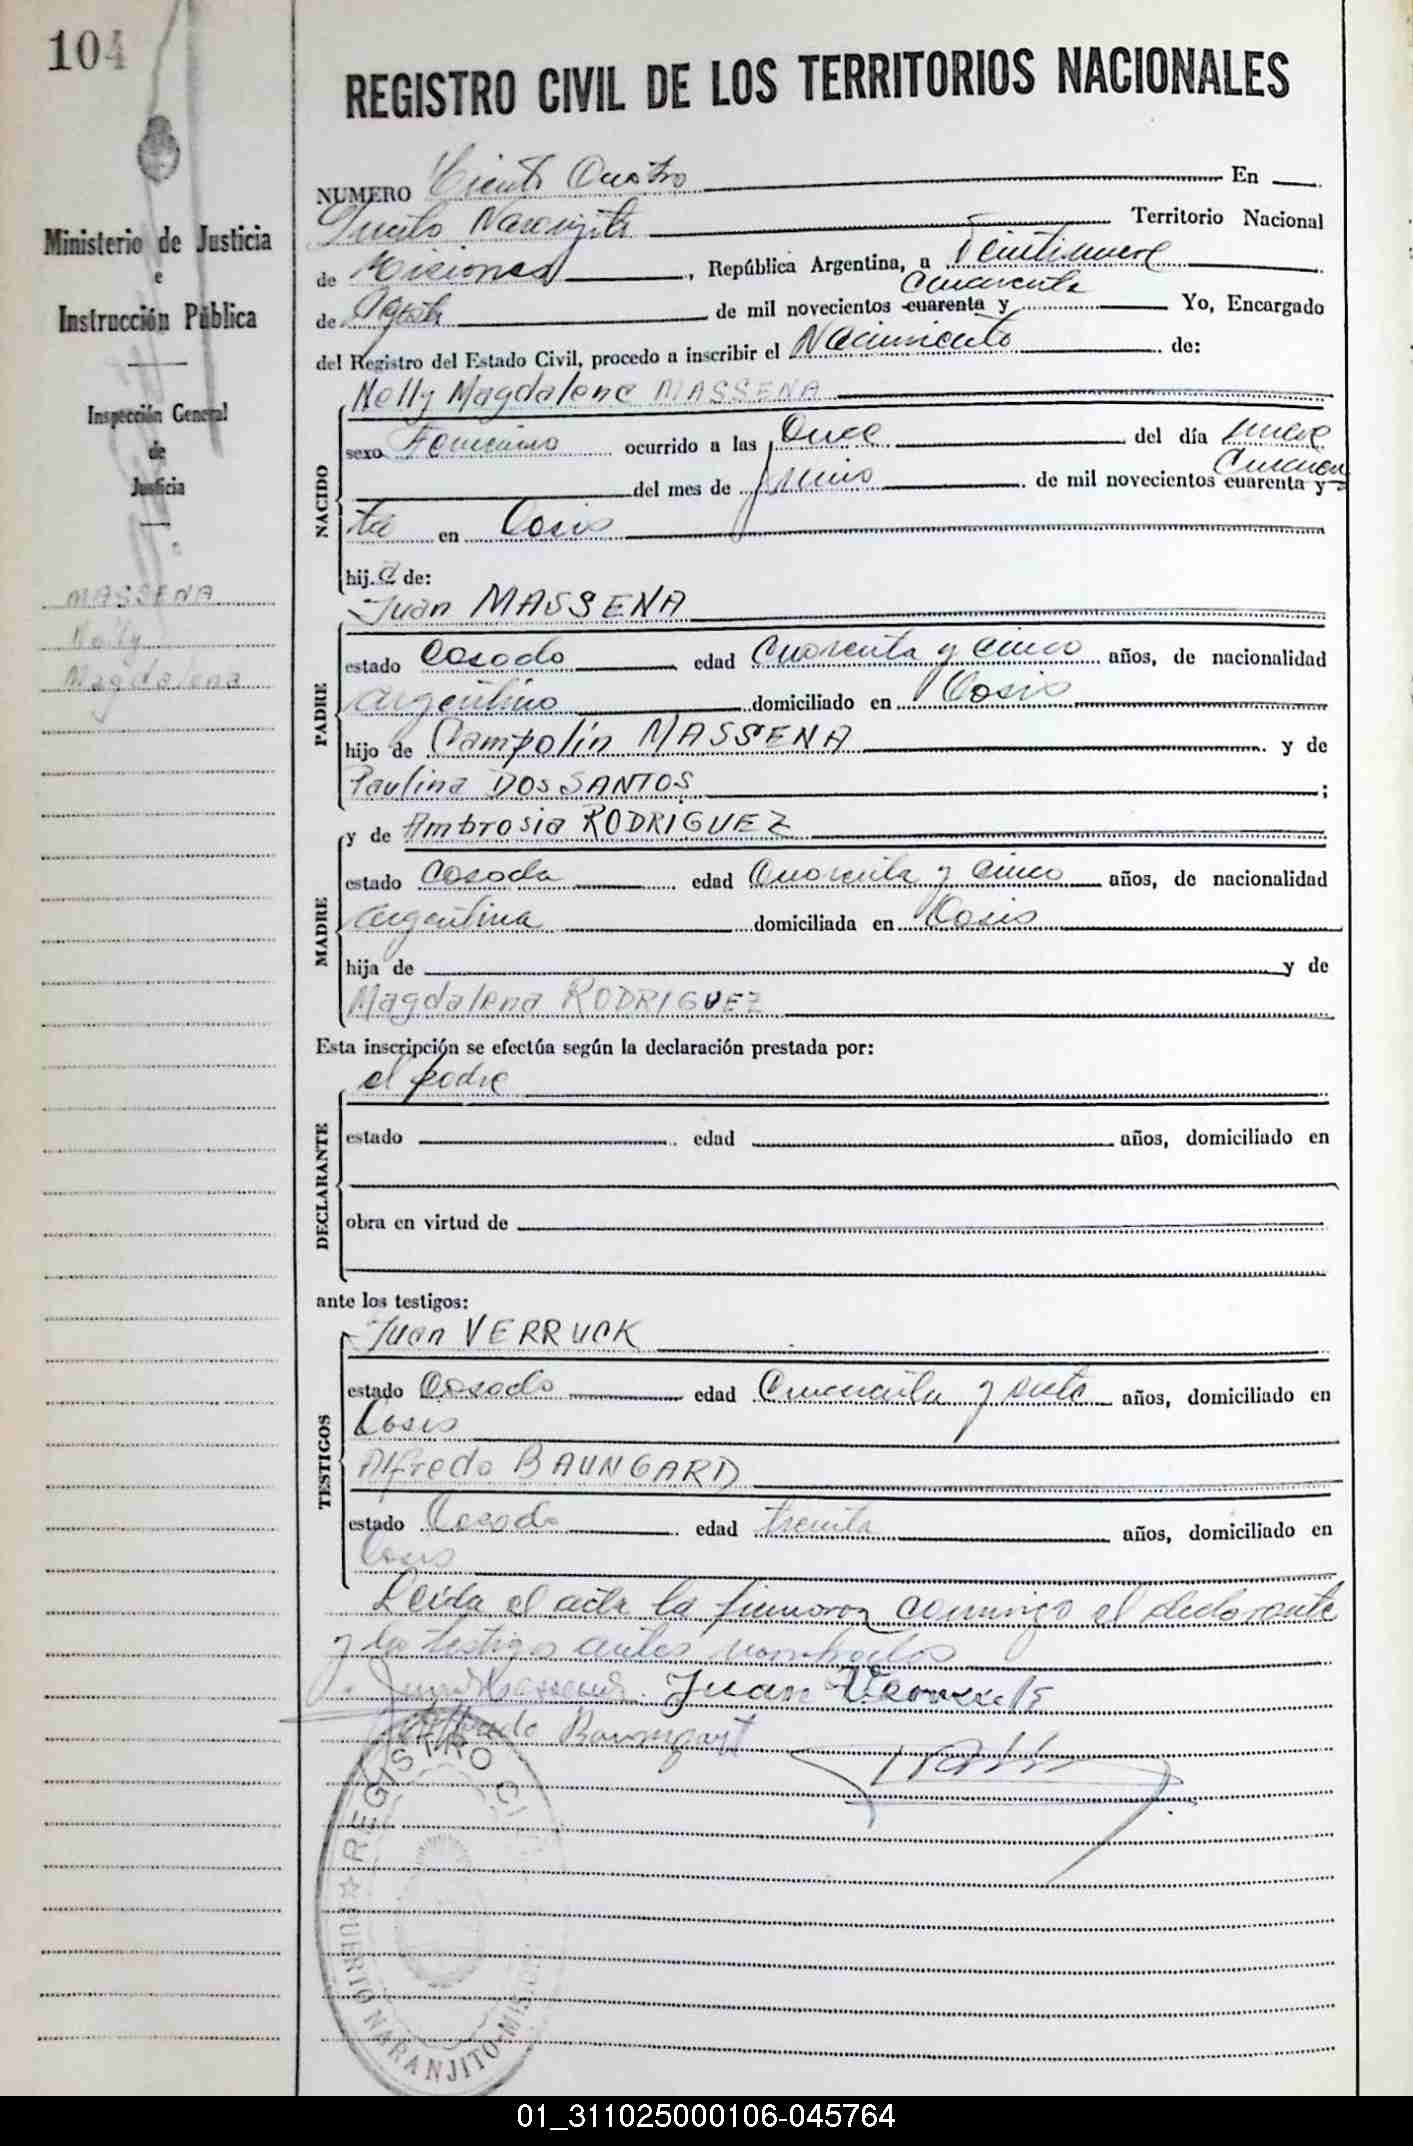 104
REGISTRO CIVIL DE LOS TERRITORIOS NACIONALES
Ministerio de Justicia
e
Instrucción Pública
Inspección General
de
Justicia
MASSENA
Nelly
Magdalena
NUMERO Ciento Cuatro En
Puerto Naranjito Territorio Nacional
de Misiones, República Argentina, a Veintinueve
de Agosto de mil novecientos cuarenta y Cuarenta Yo, Encargado
del Registro del Estado Civil, procedo a inscribir el Nacimiento de:
NACIDO
Nelly Magdalena MASSENA
sexo Femenino ocurrido a las Once del día nueve
del mes de Junio de mil novecientos cuarenta y Cuaren
ta en Oasis
hija de:
PADRE
Juan MASSENA
estado Casado edad Cuarenta y cinco años, de nacionalidad
argentino domiciliado en Oasis
hijo de Campolin MASSENA y de
Paulina DOS SANTOS ;
MADRE
y de Ambrosia RODRIGUEZ
estado Casada edad Cuarenta y cinco años, de nacionalidad
argentina domiciliada en Oasis
hija de y de
Magdalena RODRIGUEZ
Esta inscripción se efectúa según la declaración prestada por:
DECLARANTE
el padre
estado edad años, domiciliado en
obra en virtud de
ante los testigos:
TESTIGOS
Juan VERRUCK
estado Casado edad y siete años, domiciliado en
Oasis
Alfredo BAUNGARD
estado Casado edad treinta años, domiciliado en
Oasis
Leida el acta la firmaron conmigo el declarante
y los testigos antes nombrados
Juan Massena Juan
Alfredo Baumgart
REGISTRO CIVIL
PUERTO NARANJITO-MISIONES
01_311025000106-045764